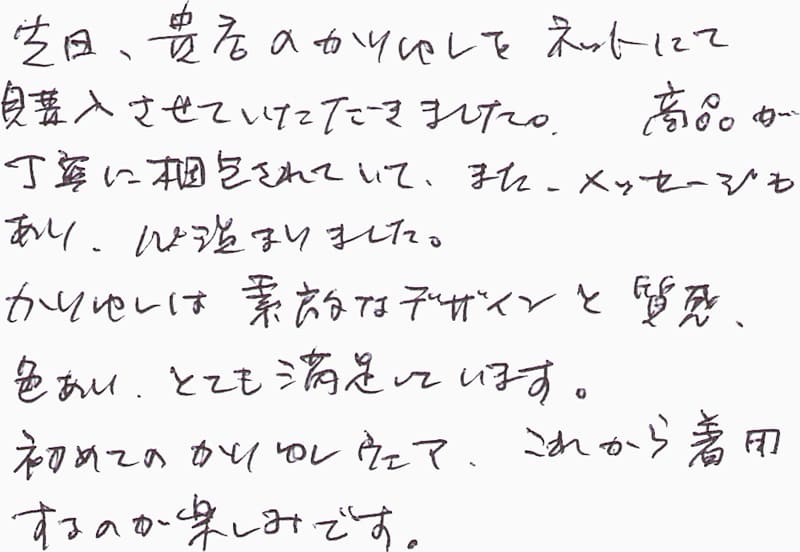 先日、貴店のかりゆしを ネットにて
購入させていただきました。 商品が
丁寧に梱包されていて、また、メッセージも
あり、心温まりました。
かりゆしは 素敵なデザインと質感、
色あい、とても満足しています。
初めてのかりゆしウェア、これから着用
するのが楽しみです。